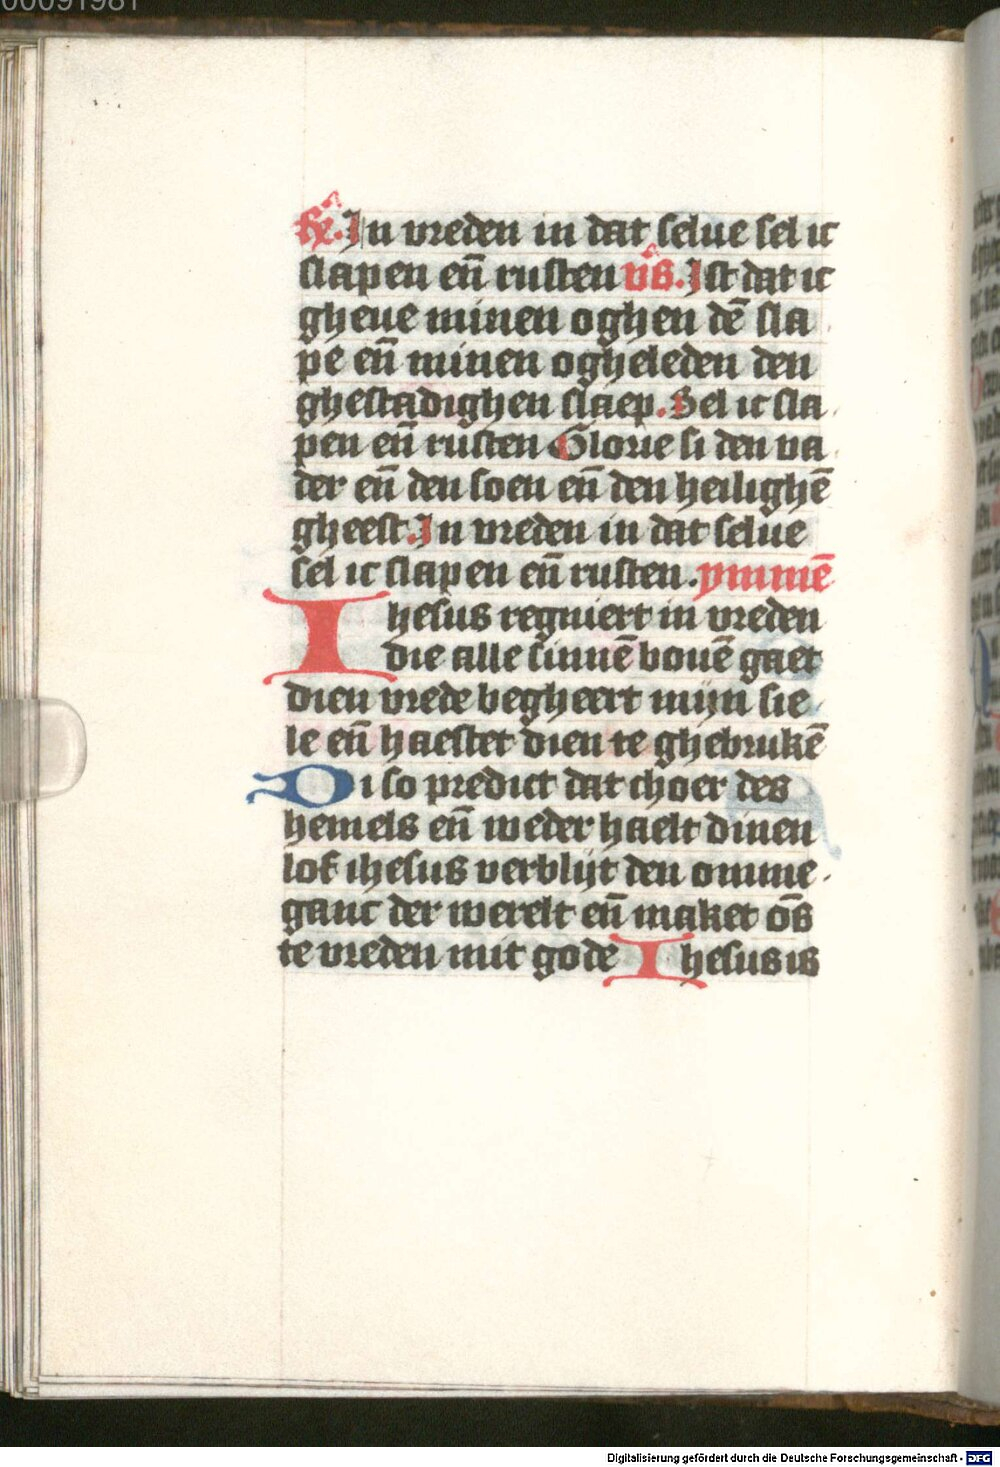 00091981
R̃. In vreden in dat selue sel ic
slapen en̄ rusten v̄s. Ist dat ic
gheue minen oghen dē sla
pe en̄ minen ogheleden den
ghestadighen slaep. Sel ic sla
pen en̄ rusten Glorie si den va
der en̄ den soen en̄ den heilighē
gheest. In vreden in dat selue
sel ic slapen en̄ rusten. ymmē
Ihesus regniert in vreden
die alle sinnē bouē gaet
dien vrede begheert mijn sie
le en̄ haestet dien te ghebrukē
Di so predict dat choer des
hemels en̄ weder haelt dinen
lof ihesus verblijt den omme
ganc der werelt en̄ maket ōs
te vreden mit gode Ihesus is
Digitalisierung gefördert durch die Deutsche Forschungsgemeinschaft - DFG